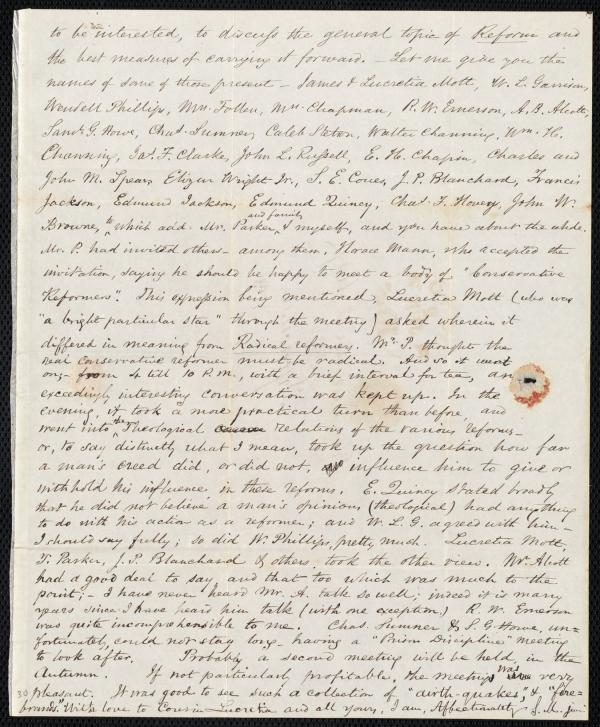 to be interested, to discuss the general topic of Reform and
the best measures of carrying it forward. - Let me give you the
names of some of those present - James & Lucretia Mott, W. L. Garrison,
Wendell Phillips, Mrs. Follen, Mrs. Chapman, R. W. Emerson, A. B. Alcott,
Saml. G. Howe, Chas. Sumner, Caleb Stetson, Walter Channing, Wm. H.
Channing, Jas. F. Clarke, John L. Russell, E. H. Chapin, Charles and
John M. Spear, Elizur Wright Jr., S. E. Coues, J. P. Blanchard, Francis
Jackson, Edmund Jackson, Edmund Quincy, Chas. F. Hovey, John W.
Browne, to which add Mr. Parker, and family & myself, and you have about the whole.
Mr. P. had invited others - among them, Horace Mann, who accepted the
invitation, saying he should be happy to meet a body of "Conservative
Reformers". This expression being mentioned, Lucretia Mott (who was
"a bright particular star" through the meeting) asked wherein it
differed in meaning from Radical reformers. Mr. P. thought the
real conservative reformer must be radical. And so it went
on - from 4 till 10 P.M., with a brief interval for tea, an
exceedingly interesting conversation was kept up. In the
evening, it took a more practical turn than before, and
went into the Theological relations of the various reforms -
or, to say distinctly what I mean, took up the question how far
a man's creed did, or did not, influence him to give or
withhold his influence in these reforms. E. Quincy stated broadly
that he did not believe a man's opinions (theological) had anything
to do with his action as a reformer; and W. L. G. agreed with him -
I should say fully; so did W. Phillips, pretty much. Lucretia Mott,
T. Parker, J. P. Blanchard & others took the other view. Mr. Alcott
had a good deal to say, and that too which was much to the
point; - I have never heard Mr. A. talk so well; indeed it is many
years since I have heard him talk (with one exception.) R. W. Emerson
was quite incomprehensible to me. Chas. Sumner & S. G. Howe, un-
fortunately, could not stay long, having a "Prison Discipline" meeting
to look after. Probably a second meeting will be held in the
Autumn. If not particularly profitable, the meeting was very
pleasant. It was good to see such a collection of "earth-quakes", & "fire-
brands." With love to Cousin Lucretia and all yours, I am, Affectionately S. M. Jr.